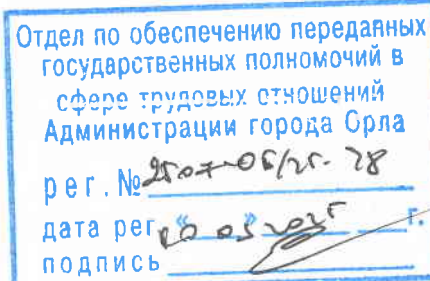 Отдел по обеспечению переданных
государственных полномочий в
сфере трудовых отношений
Администрации города Орла
рег. №
дата рег. 2025 г.
подпись